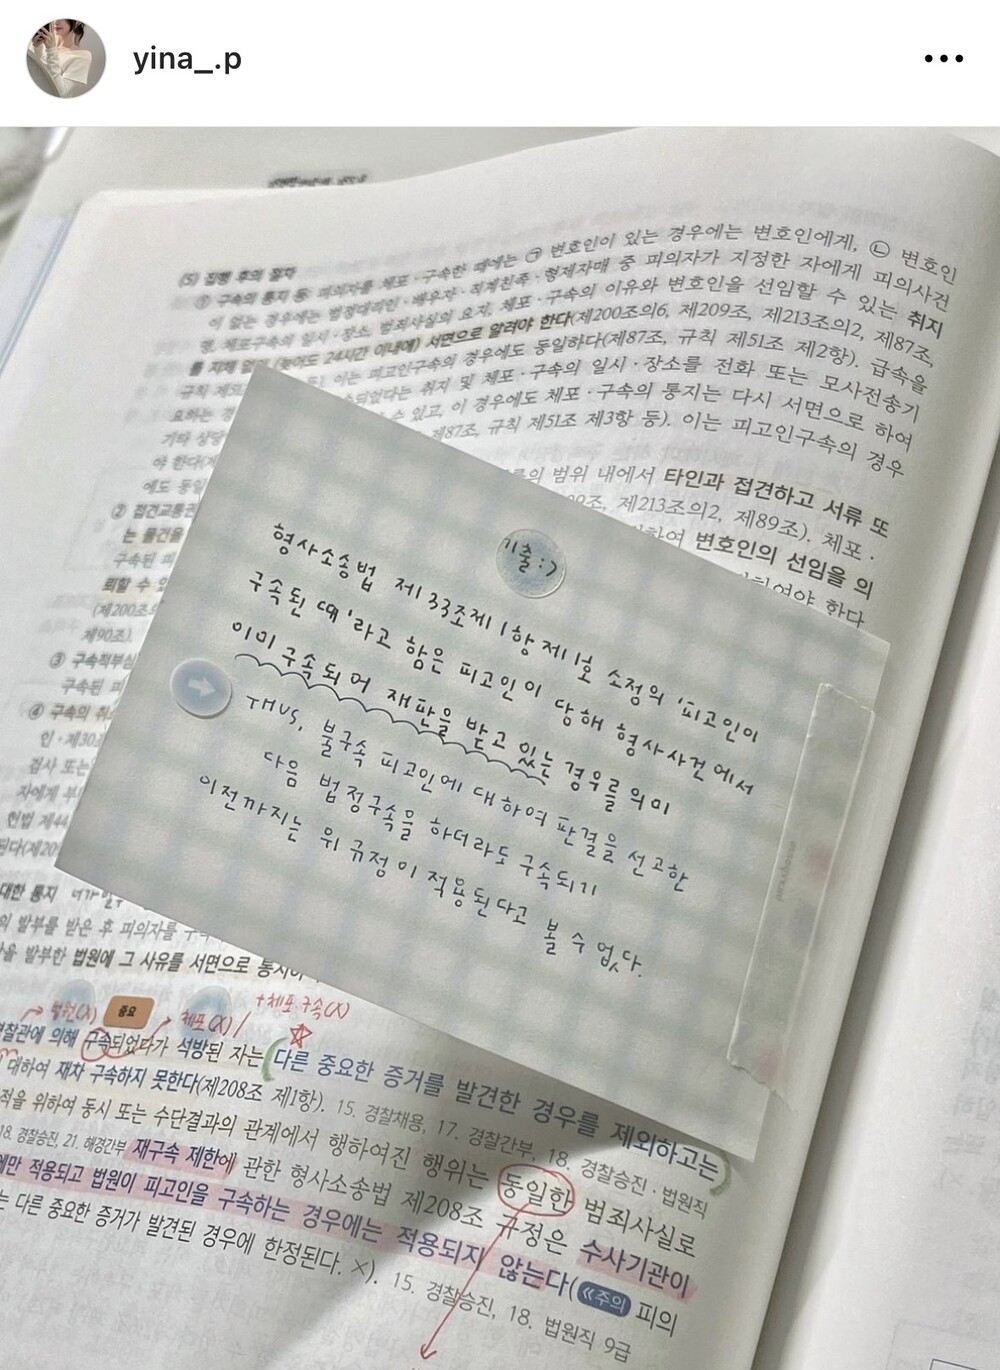 yina_.p
(5) 집행 후의 절차
① 구속의 통지 등: 피의자를 체포·구속한 때에는 ㉠ 변호인이 있는 경우에는 변호인에게, ㉡ 변호인
이 없는 경우에는 법정대리인·배우자·직계친족·형제자매 중 피의자가 지정한 자에게 피의사건
명, 체포구속의 일시·장소, 범죄사실의 요지, 체포·구속의 이유와 변호인을 선임할 수 있는 취지
를 지체 없이 (늦어도 24시간 이내에) 서면으로 알려야 한다(제200조의6, 제209조, 제213조의2, 제87조,
규칙 제51 이는 피고인구속의 경우에도 동일하다(제87조, 규칙 제51조 제2항). 급속을
요하는 경 되었다는 취지 및 체포·구속의 일시·장소를 전화 또는 모사전송기
기타 상당 수 있고, 이 경우에도 체포·구속의 통지는 다시 서면으로 하여
야 한다 제87조, 규칙 제51조 제3항 등). 이는 피고인구속의 경우
에도 동일
② 접견교통권 범위 내에서 타인과 접견하고 서류 또
는 물건을 제213조의2, 제89조). 체포·
구속된 피 하여 변호인의 선임을 의
뢰할 수 있 하여야 한다
(제200조의
제90조).
③ 구속적부심
구속된 피
④ 구속의 취
인·제30
검사 또는
자에게 부
헌법 제44
된다(제20
기출:)
형사소송법 제33조제1항 제1호 소정의 '피고인이
구속된 때'라고 함은 피고인이 당해 형사사건에서
이미 구속되어 재판을 받고 있는 경우를 의미
THUS, 불구속 피고인에 대하여 판결을 선고한
다음 법정구속을 하더라도 구속되기
이전까지는 위 규정이 적용된다고 볼 수 없다.
대한 통지
의 발부를 받은 후 피의자를 구
을 발부한 법원에 그 사유를 서면으로 통지
→ 법원(X) 중요 체포(X) / + 체포·구속(X)
경찰관에 의해 구속되었다가 석방된 자는 (다른 중요한 증거를 발견한 경우를 제외하고는)
대하여 재차 구속하지 못한다(제208조 제1항). 15. 경찰채용, 17. 경찰간부, 18. 경찰승진·법원직
적을 위하여 동시 또는 수단결과의 관계에서 행하여진 행위는 동일한 범죄사실로
18. 경찰승진, 21. 해경간부 재구속 제한에 관한 형사소송법 제208조 규정은 수사기관이
에만 적용되고 법원이 피고인을 구속하는 경우에는 적용되지 않는다(《주의 피의
는 다른 중요한 증거가 발견된 경우에 한정된다. ×). 15. 경찰승진, 18. 법원직 9급